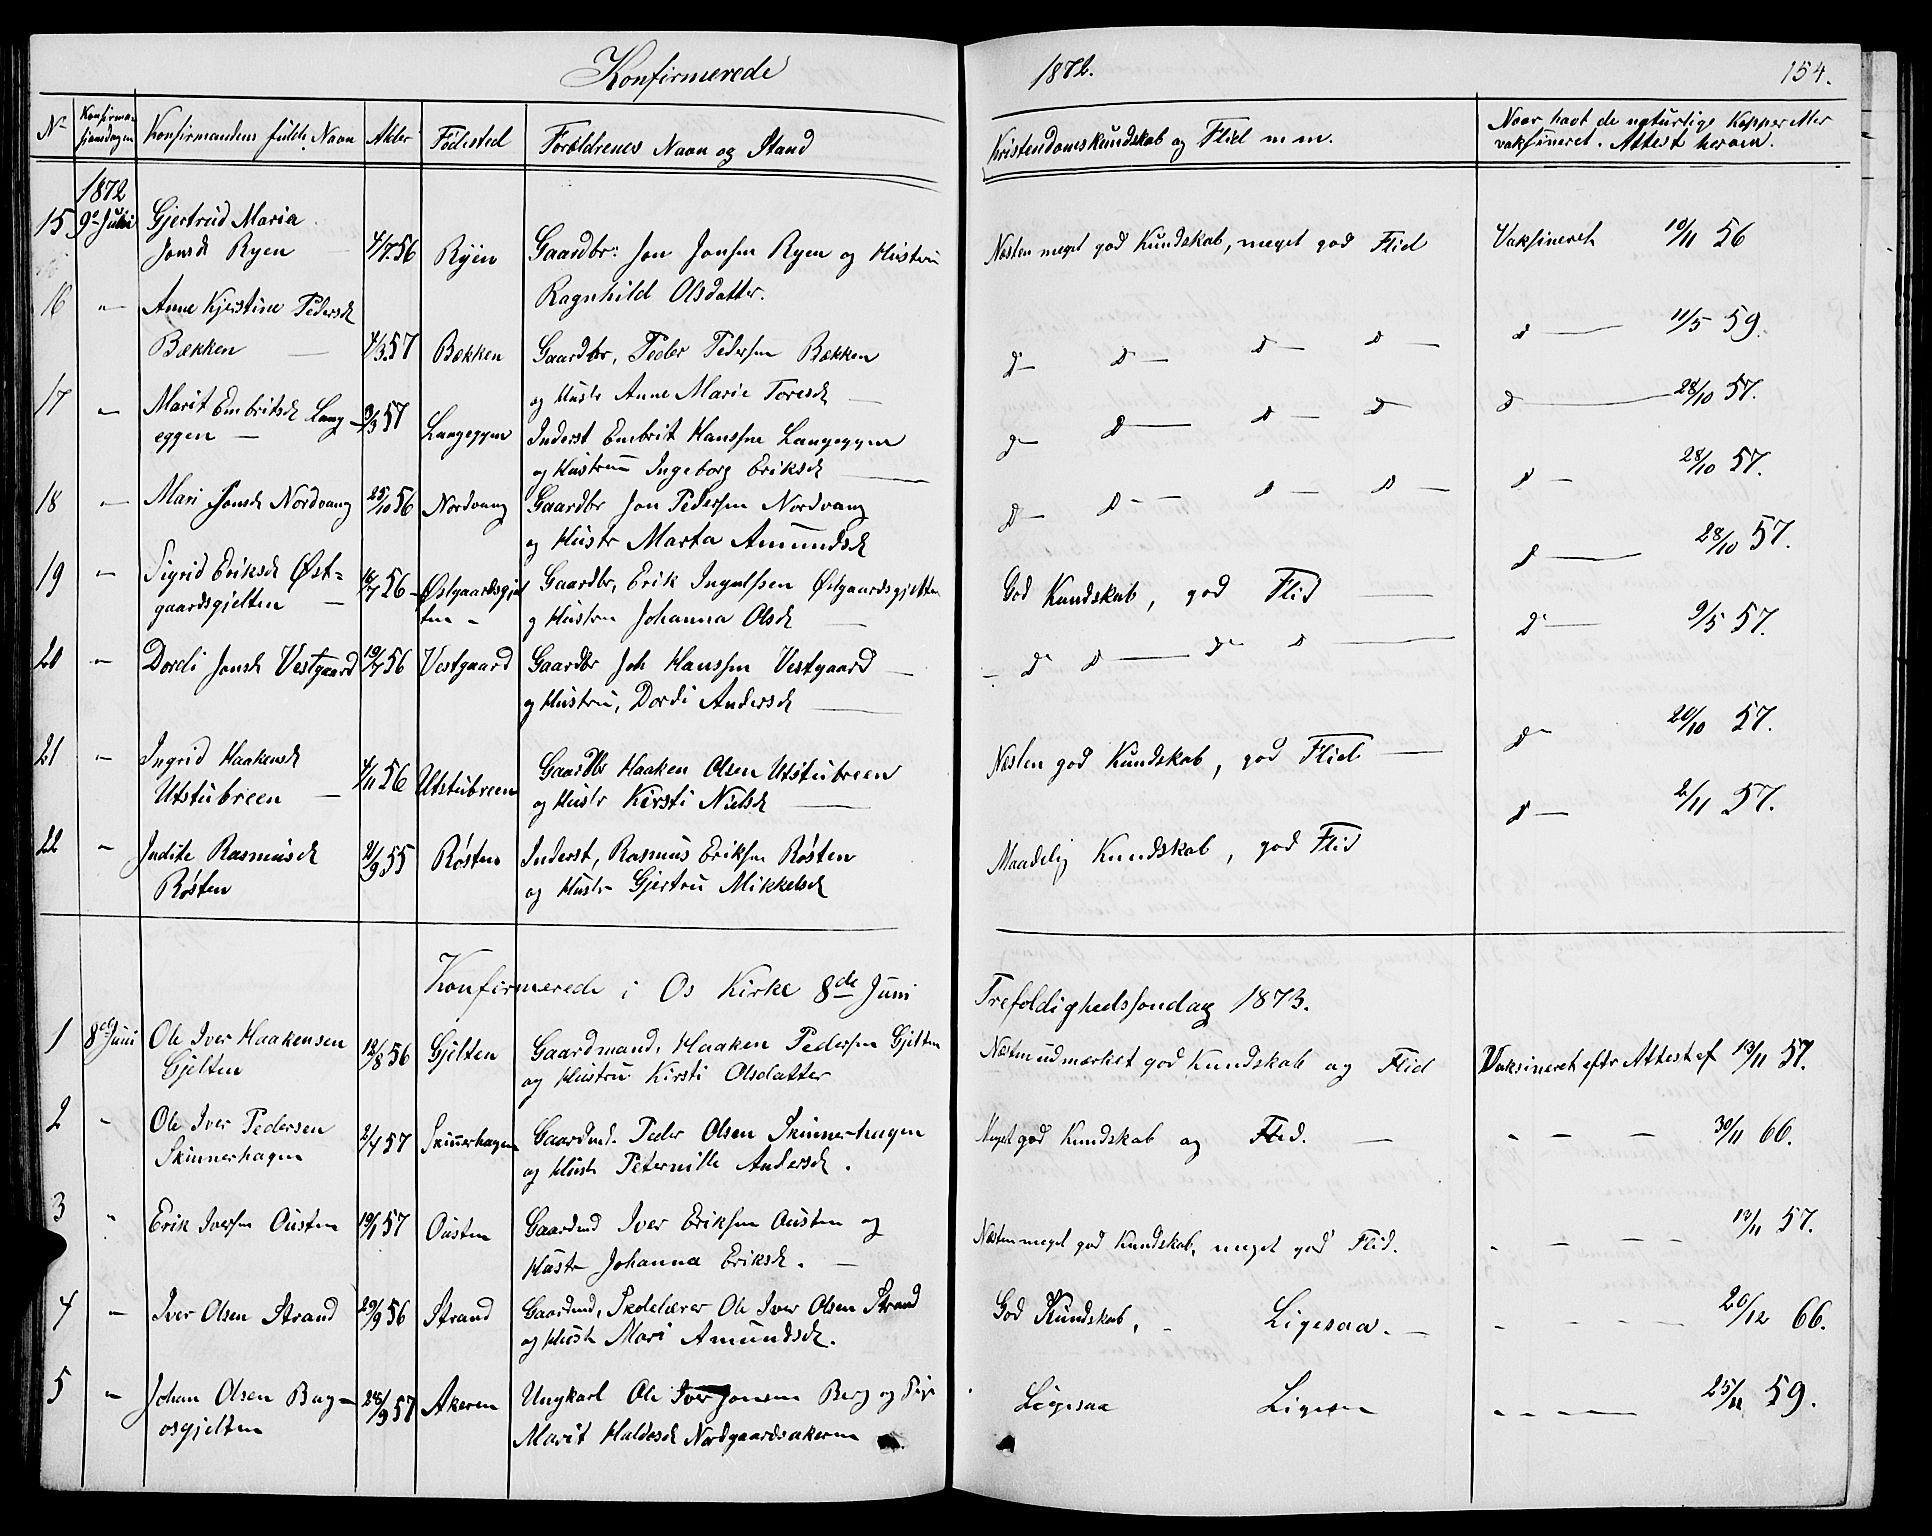 Konfirmerede 1872. 154.
No Konfirmationsdagen Konfirmandens fulde Navn Alder Födested Forældrenes Navn og Stand Kristendomskundskab og Flid m m. Naar havt de naturlige Kopper eller
vaksineret. Attest herom.
1872
15 9de Juni Gjertrud Maria
Jonsd Ryen 4/7 56 Ryen Gaardbr: Jon Jonsen Ryen og Hustru Næsten meget god Kundskab, meget god Flid Vaksineret 10/11 56
Ragnhild Olsdatter.
16 " Anne Kjerstine Pedersd
Bækken 4/3 57 Bækken Gaardbr, Peder Pedersen Bækken d d d d d 11/5 59.
og Hustr Anne Marie Toresd
17 " Marit Embritsd Lang-
eggen 3/3 57 Langeggen Inderst Embrit Hanssen Langeggen d d d d d 28/10 57.
og Hustru Ingeborg Eriksd
18 " Mari Jonsd Nordvang 25/10 56 Nordvang Gaardbr Jon Pedersen Nordvang d d d d d 28/10 57.
og Hustr Marta Amundsd
19 " Sigrid Eriksd Øst=
gaardsgjelten 16/7 56 Østgaardsgjel
ten Gaardbr, Erik Ingulfsen Østgaardsgjelten God Kundskab, god Flid d 28/10 57.
og Hustru Johanna Olsd
20 " Dordi Jonsd Vestgaard 19/7 56 Vestgaard Gaardbr Joh Hanssen Vestgaard d d d d d 9/5 57.
og Hustru, Dordi Andersd
21 " Ingrid Haakensd
Utstubreen 4/11 56 Utstubreen Gaardbr Haaken Olsen Utstubreen Næsten god Kundskab, god Flid d 20/10 57.
og Hustr Kirsti Nielsd
22 " Indite Rasmusd
Røsten 21/9 55 Røsten Inderst, Rasmus Eriksen Røsten Maadelig Kundskab, god Flid d 2/11 57.
og Hustr Gjertru Mikkelsd
Konfirmerede i Os Kirke 8de Juni Trefoldighedssondag 1873.
1 8de Juni Ole Iver Haakensen
Gjelten 12/8 56 Gjelten Gaardmand, Haaken Pedersen Gjelten Næsten udmærket god Kundskab og Flid Vaksineret eftr Attest af 13/11 57.
og Hustru Kirsti Olsdatter
2 " Ole Iver Pedersen
Skinnerhagen 2/4 57 Skinnerhagen Gaardmd. Peder Olsen Skinnerhagen Meget god Kundskab og Flid. " " " 30/11 66.
og Hustr Peternille Andersd.
3 " Erik Iversen Ousten 19/1 57 Ousten Gaardmd Iver Eriksen Ousten og Næsten meget god Kundskab, meget god Flid. " " " " 12/11 57.
Hustr Johanna Eriksd.
4 " Iver Olsen Strand 29/9 56 Strand Gaardmd, Skolelærer Ole Iver Olsen Strand God Kundskab, Ligesaa. " " " " 20/12 66.
og Hustr Mari Amundsd.
5 " Johan Olsen Bag-
osgjelten 28/9 57 Akeren Ungkarl Ole Iver Jonsen Berg og Pige Ligesaa Ligesaa " " " " 25/11 59.
Marit Haldosd Nordgaardsakeren